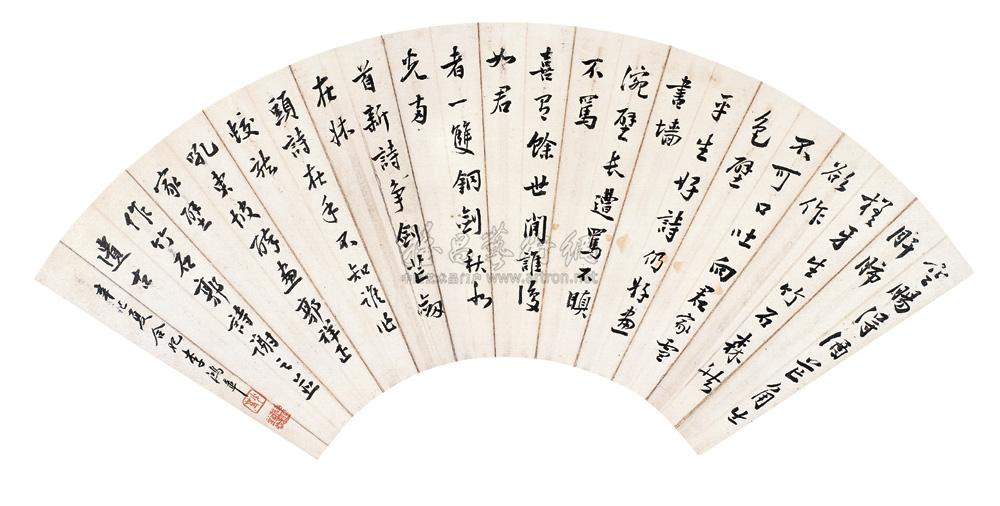 空腸得酒芒角出
肝肺
槎牙生竹石森然
欲作
不可回吐向君家雪
色壁
平生好詩仍好畫
書墻
涴壁長遭罵不瞋
不罵
喜有餘世間誰復
如君
者一雙銅劍秋水
光兩
首新詩爭劍鋩劍
在牀
頭詩在手不知誰作
蛟龍
吼東坡醉畫郭祥正
家壁
作竹石郭詩謝之並
遺古
夏合肥李鴻章